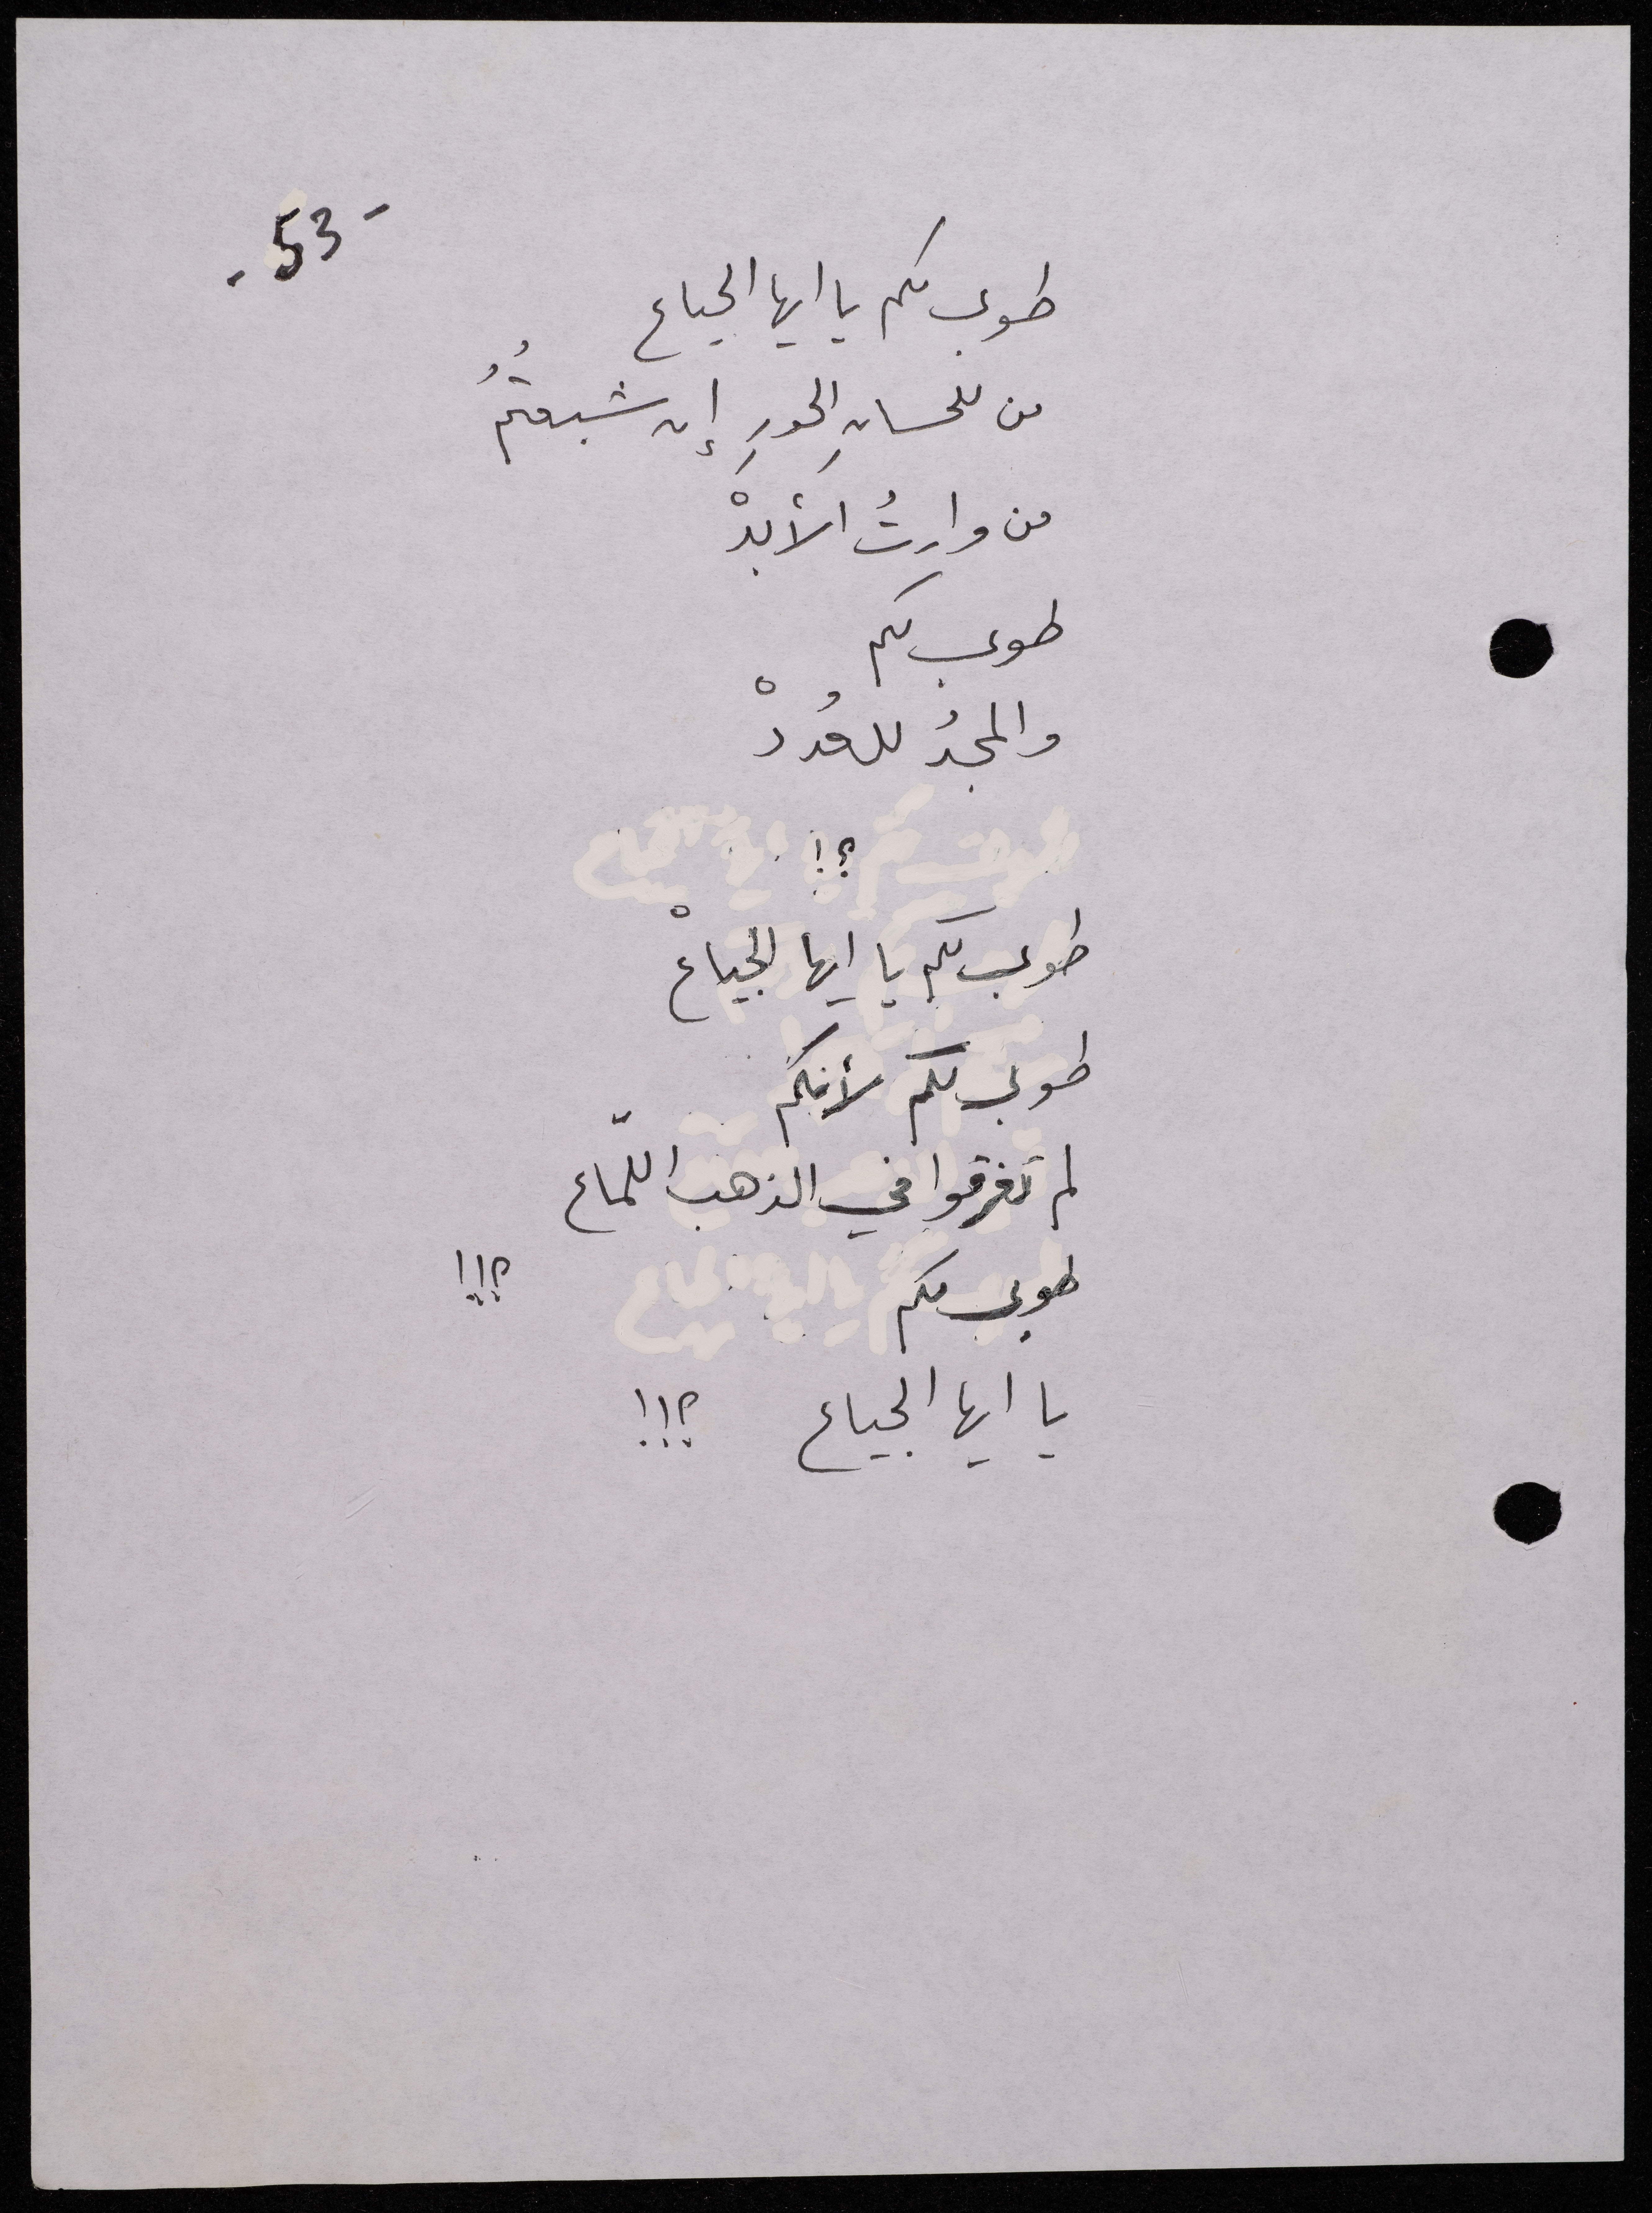 - 53 -
طوبى لكم يا ايها الجياع
من للحسانِ الحورِ إن شبعتمُ
من وارثُ الأبدْ
طوبى لكم
والمجدُ للعُددْ
؟!
طوبى لكم يا ايها الجياعْ
طوبى لكم لأنكم
لم تغرقوا في الذهب اللّماع
طوبى لكم ؟!!
يا ايها الجياع ؟!!